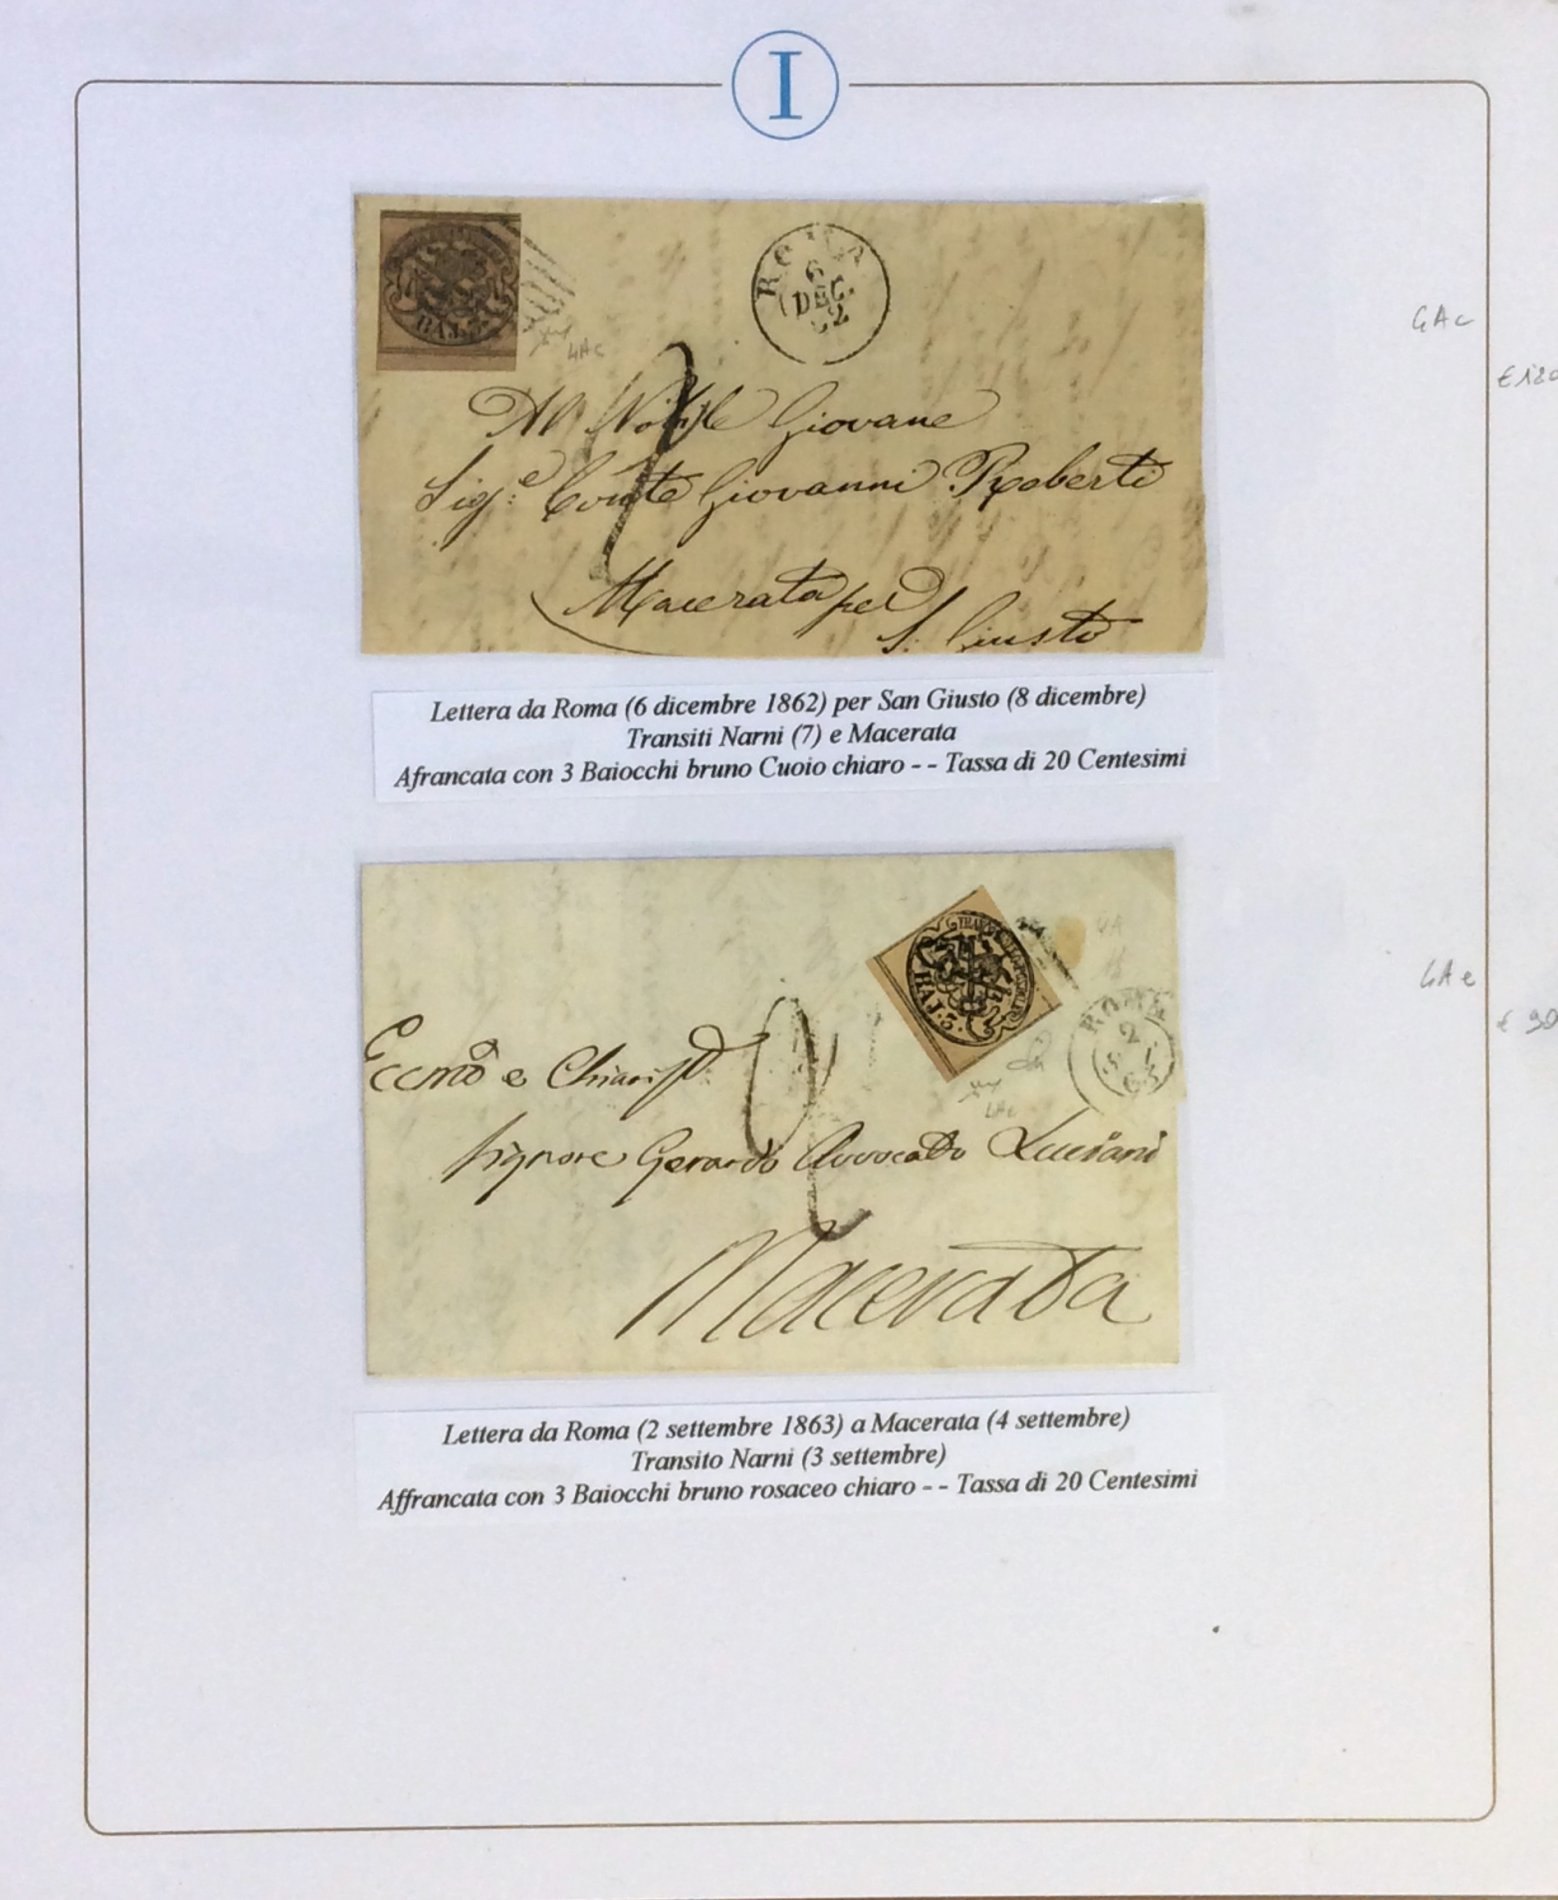 I
BAJ. 3.
ROMA
6
DEC.
62
4Ac
4Ac
Al Nobile Giovane
Sig.e Conte Giovanni Roberti
Macerata per
S. Giusto
€ 120
Lettera da Roma (6 dicembre 1862) per San Giusto (8 dicembre)
Transiti Narni (7) e Macerata
Afrancata con 3 Baiocchi bruno Cuoio chiaro - - Tassa di 20 Centesimi
BAJ. 3.
4A
ROMA
2
63
4Ae
€ 90
Eccmo e Chiariss
Signore Gerardo Avvocato Luciani
Macerata
Lettera da Roma (2 settembre 1863) a Macerata (4 settembre)
Transito Narni (3 settembre)
Affrancata con 3 Baiocchi bruno rosaceo chiaro - - Tassa di 20 Centesimi